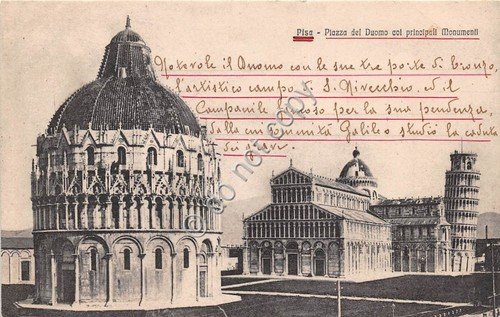 Pisa - Piazza del Duomo coi principali Monumenti
Notevole il Duomo con le sue tre porte di bronzo,
l'artistico campo di S. Nivecchio, ed il
Campanile famoso per la sua pendenza,
dalla cui sommità Galileo studiò la caduta
dei gravi.
do not copy